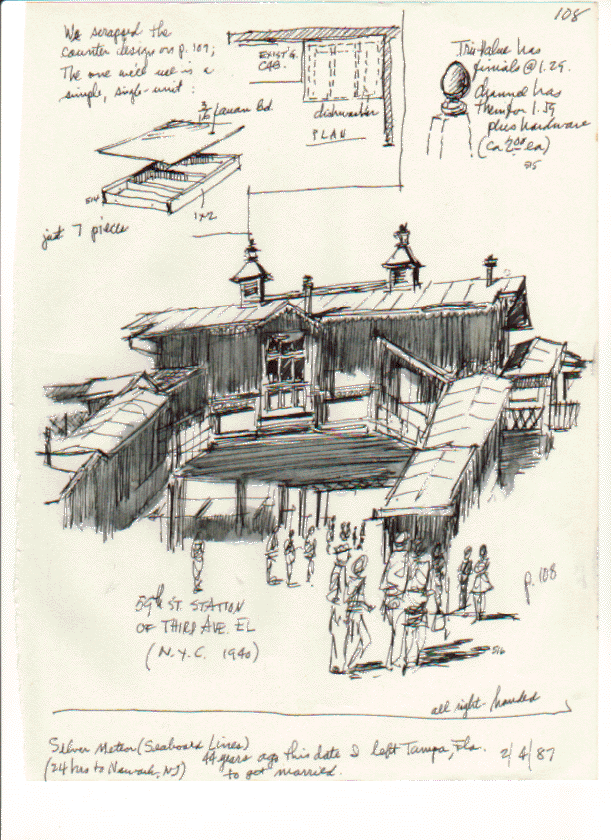 108
We scrapped the
counter design on p. 107;
The one we'll use is a
simple, single-unit:
3/16 lauan bd.
514
1x2
just 7 pieces
EXIST'G.
CAB.
dishwasher
PLAN
Tru-Value has
finials @ 1.29.
Channel has
them for 1.39
plus hardware
(ca 2.00 ea)
515
59th ST. STATION
OF THIRD AVE. EL
(N.Y.C. 1940)
p. 108
516
all right-handed
Silver Meteor (Seaboard Lines)
(24 hrs to Newark, NJ)
44 years ago this date I left Tampa, Fla.
to get married.
2/4/87